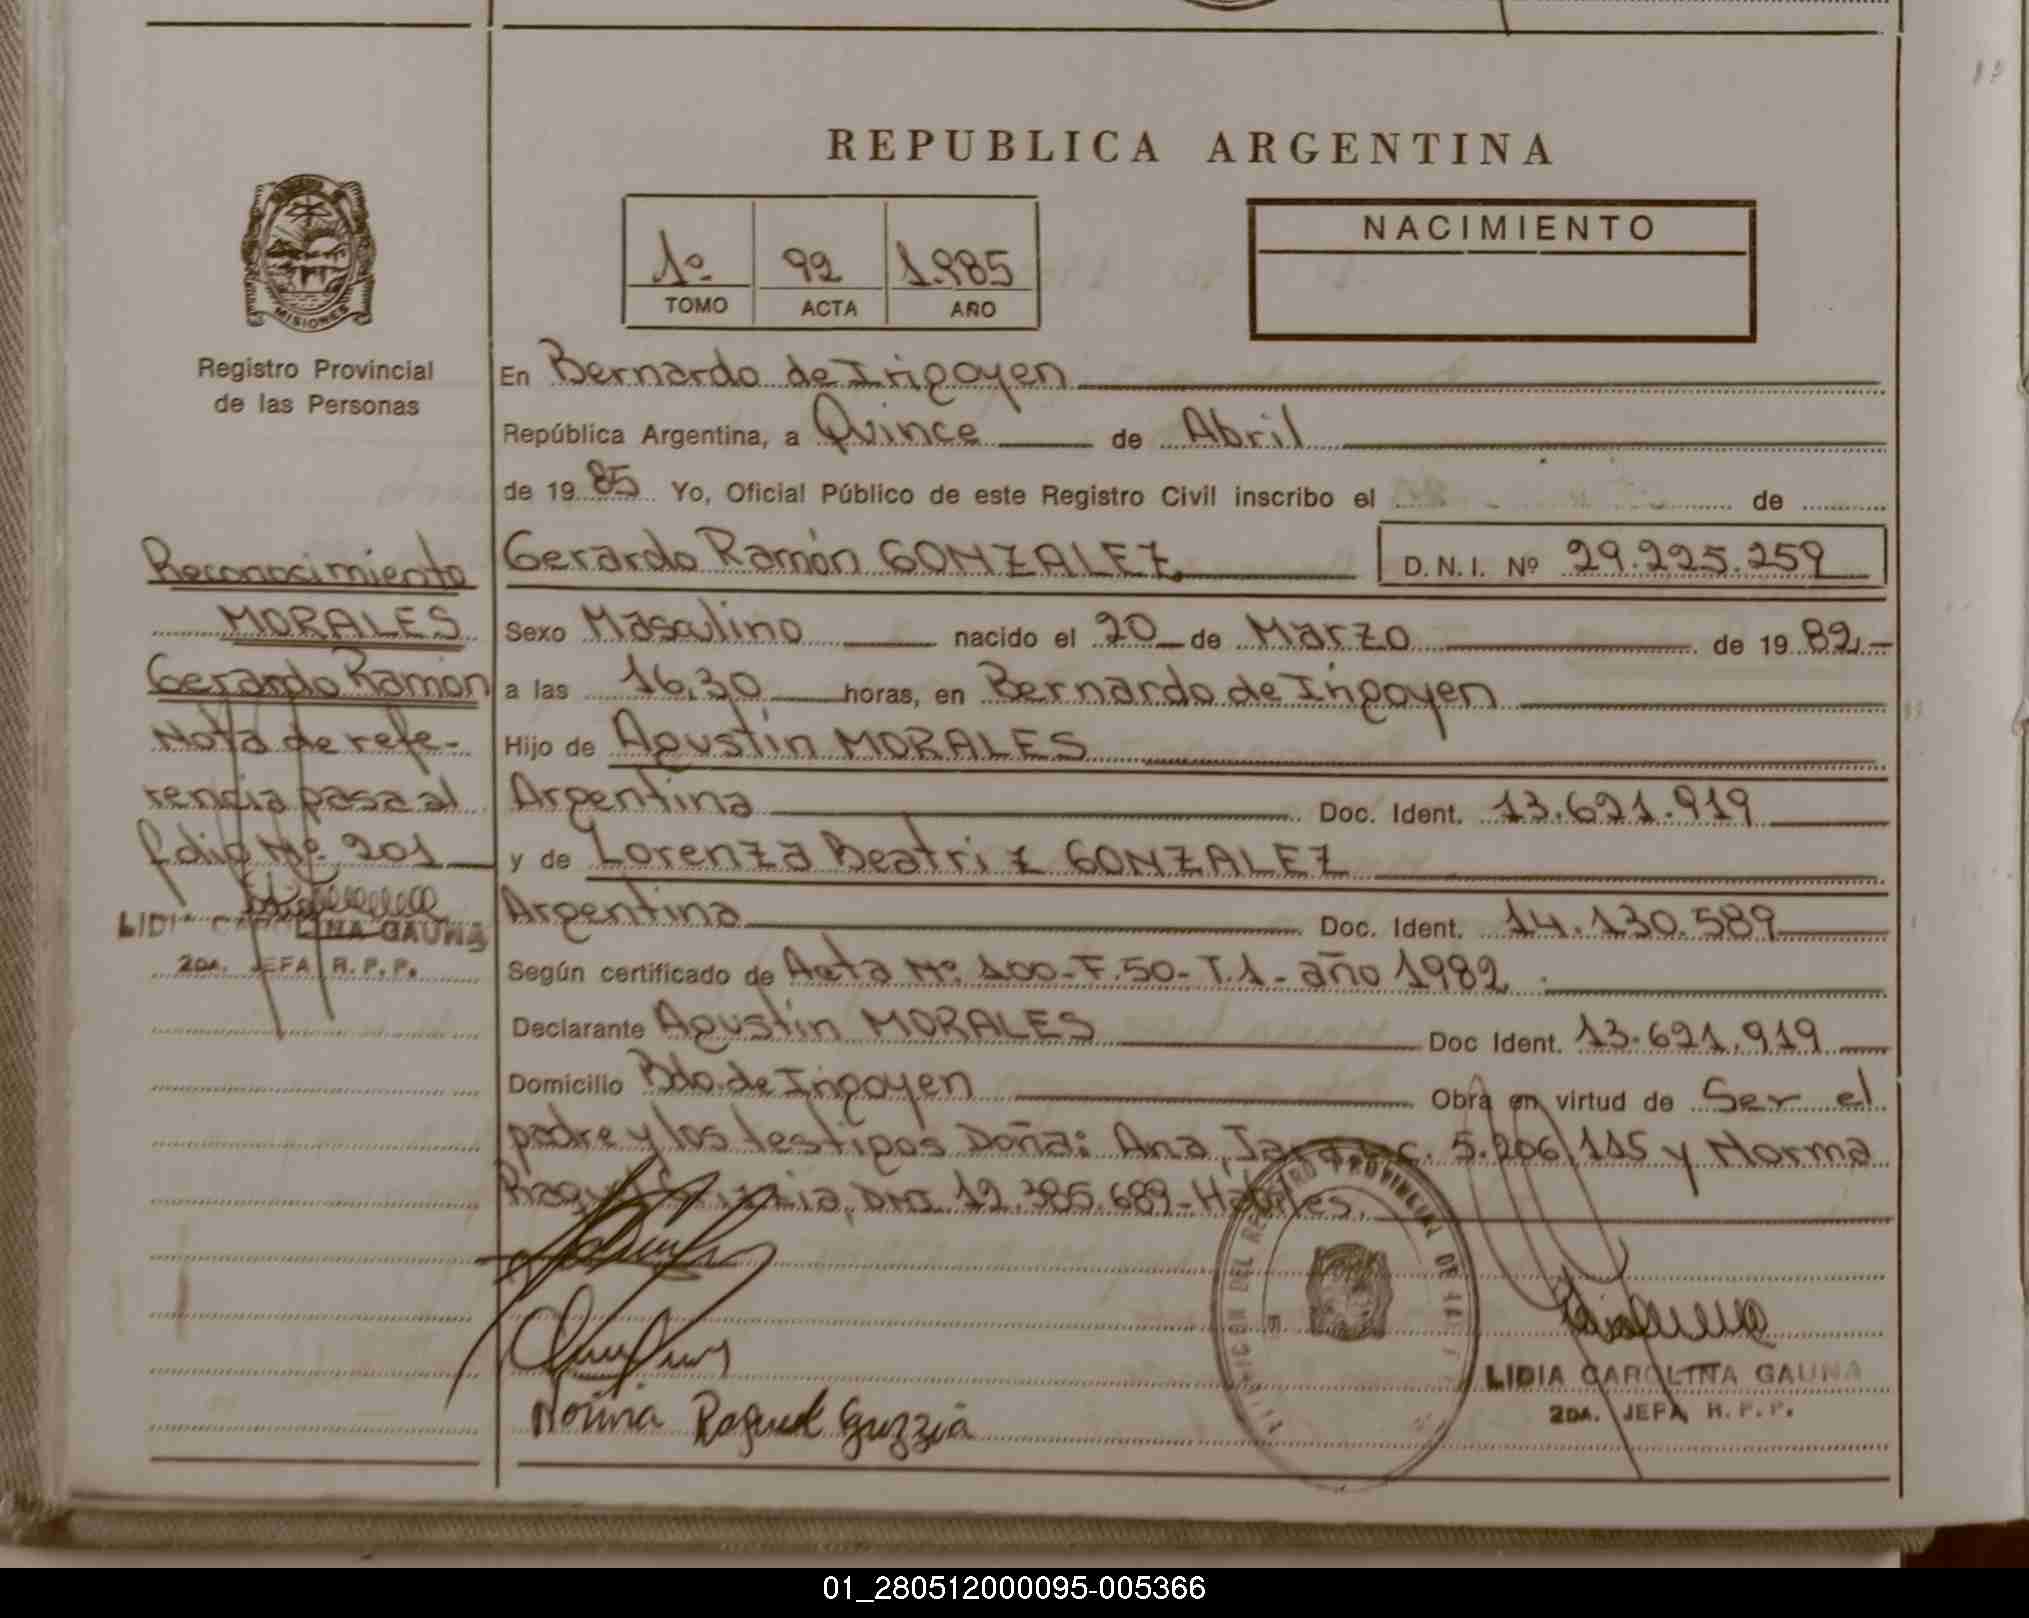 REPUBLICA ARGENTINA
1º 92 1.985
TOMO ACTA AÑO
NACIMIENTO
MISIONES
Registro Provincial
de las Personas
En Bernardo de Irigoyen
República Argentina, a Quince de Abril
de 19 85 Yo, Oficial Público de este Registro Civil inscribo el de
Gerardo Ramón GONZALEZ D.N.I. Nº 29.225.259
Sexo Masculino nacido el 20 de Marzo de 19 82.-
a las 16,30 horas, en Bernardo de Irigoyen
Hijo de Agustín MORALES
Argentina Doc. Ident. 13.621.919
y de Lorenza Beatriz GONZALEZ
Argentina Doc. Ident. 14.130.589
Según certificado de Acta Nº 100-F.50-T.1- año 1982
Declarante Agustín MORALES Doc Ident. 13.621.919
Domicilio Bdo. de Irigoyen Obra en virtud de Ser el
padre y los testigos Doña: Ana 5.206/115 y Norma
DNI 12.385.689-Hábiles.
Norma Raquel Guzzia
LIDIA CAROLINA GAUNA
2DA. JEFA R.P.P.
Reconocimiento
MORALES
Gerardo Ramón
Nota de refe-
rencia pasa al
folio Nº 201
LIDIA CAROLINA GAUNA
2DA. JEFA R.P.P.
01_280512000095-005366